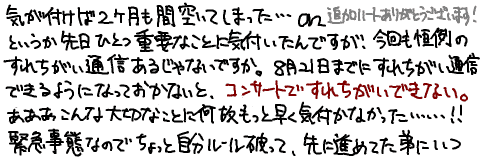 気が付けば2ヶ月も間空いてしまった… orz 追加ルートありがとうございます!
というか先日ひとつ重要なことに気付いたんですが、今回も恒例の
すれちがい通信あるじゃないですか。8月21日までにすれちがい通信
できるようになっておかないと、コンサートですれちがいできない。
あああこんな大切なことに何故もっと早く気付かなかった……!!
緊急事態なのでちょっと自分ルール破って、先に進めてた弟にいつ